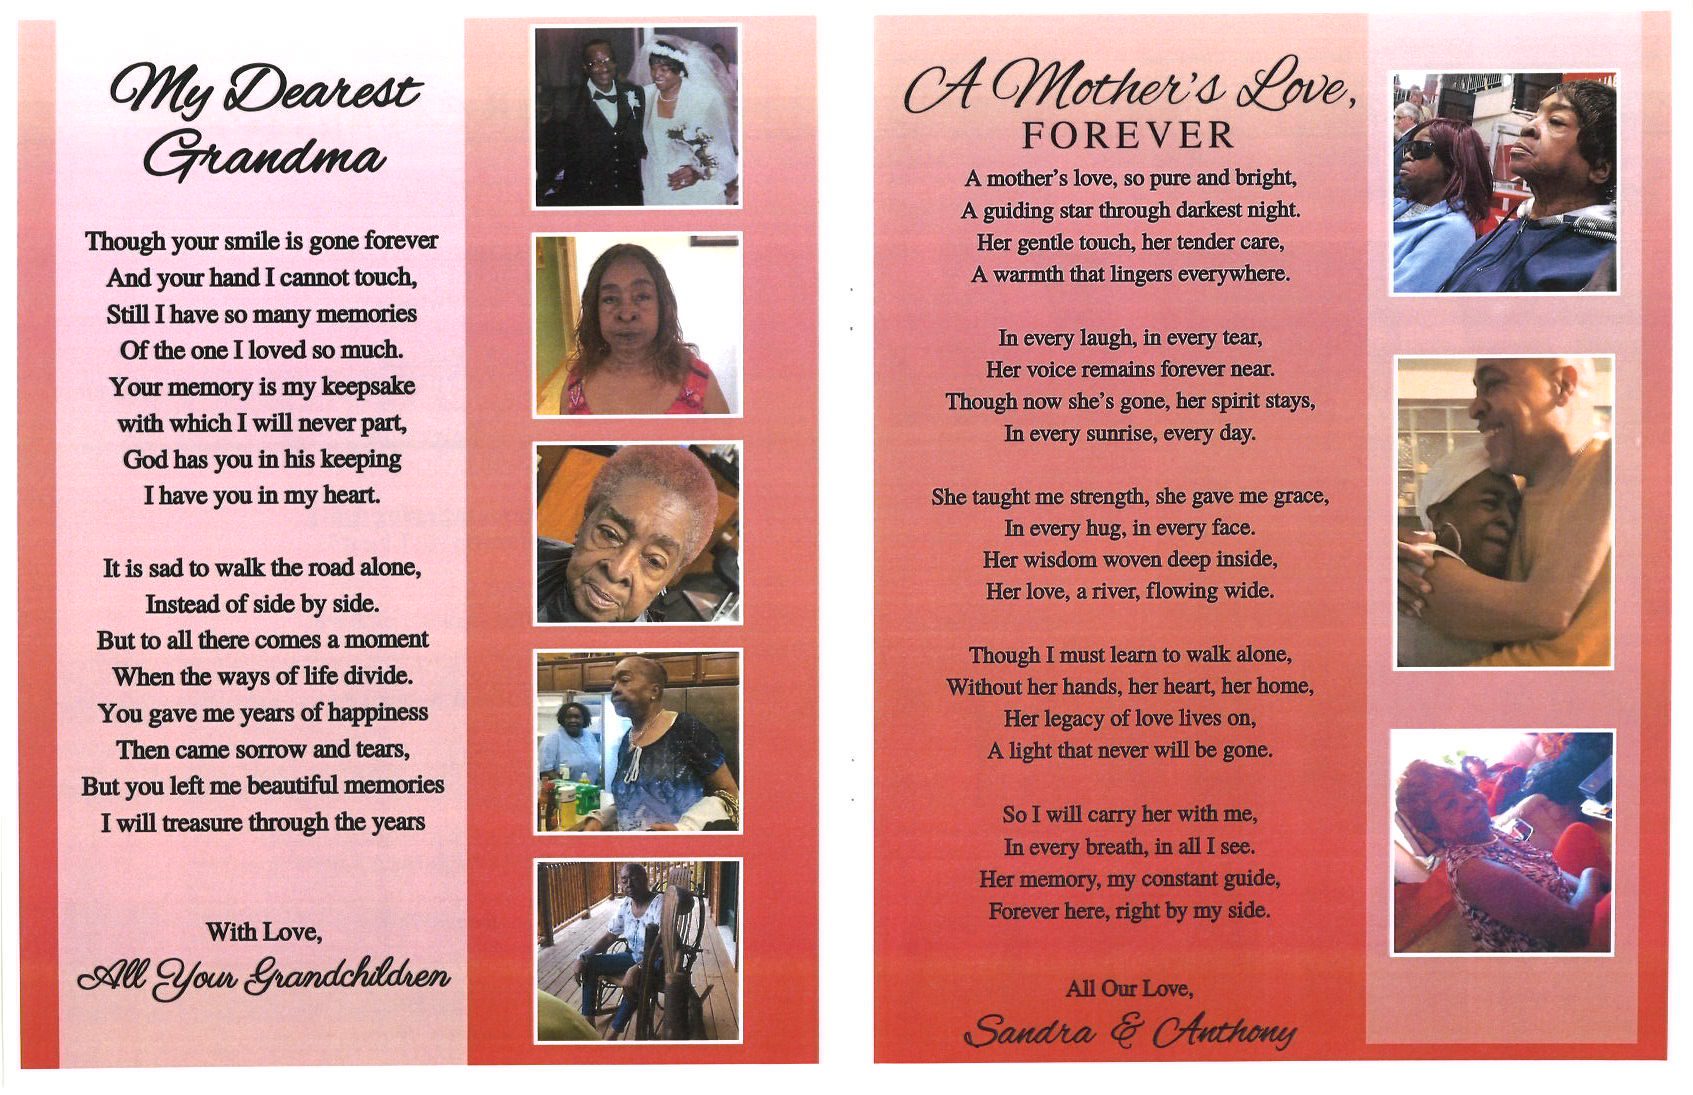 My Dearest
Grandma
Though your smile is gone forever
And your hand I cannot touch,
Still I have so many memories
Of the one I loved so much.
Your memory is my keepsake
with which I will never part,
God has you in his keeping
I have you in my heart.
It is sad to walk the road alone,
Instead of side by side.
But to all there comes a moment
When the ways of life divide.
You gave me years of happiness
Then came sorrow and tears,
But you left me beautiful memories
I will treasure through the years
With Love,
All Your Grandchildren
A Mother's Love,
FOREVER
A mother's love, so pure and bright,
A guiding star through darkest night.
Her gentle touch, her tender care,
A warmth that lingers everywhere.
In every laugh, in every tear,
Her voice remains forever near.
Though now she's gone, her spirit stays,
In every sunrise, every day.
She taught me strength, she gave me grace,
In every hug, in every face.
Her wisdom woven deep inside,
Her love, a river, flowing wide.
Though I must learn to walk alone,
Without her hands, her heart, her home,
Her legacy of love lives on,
A light that never will be gone.
So I will carry her with me,
In every breath, in all I see.
Her memory, my constant guide,
Forever here, right by my side.
All Our Love,
Sandra & Anthony